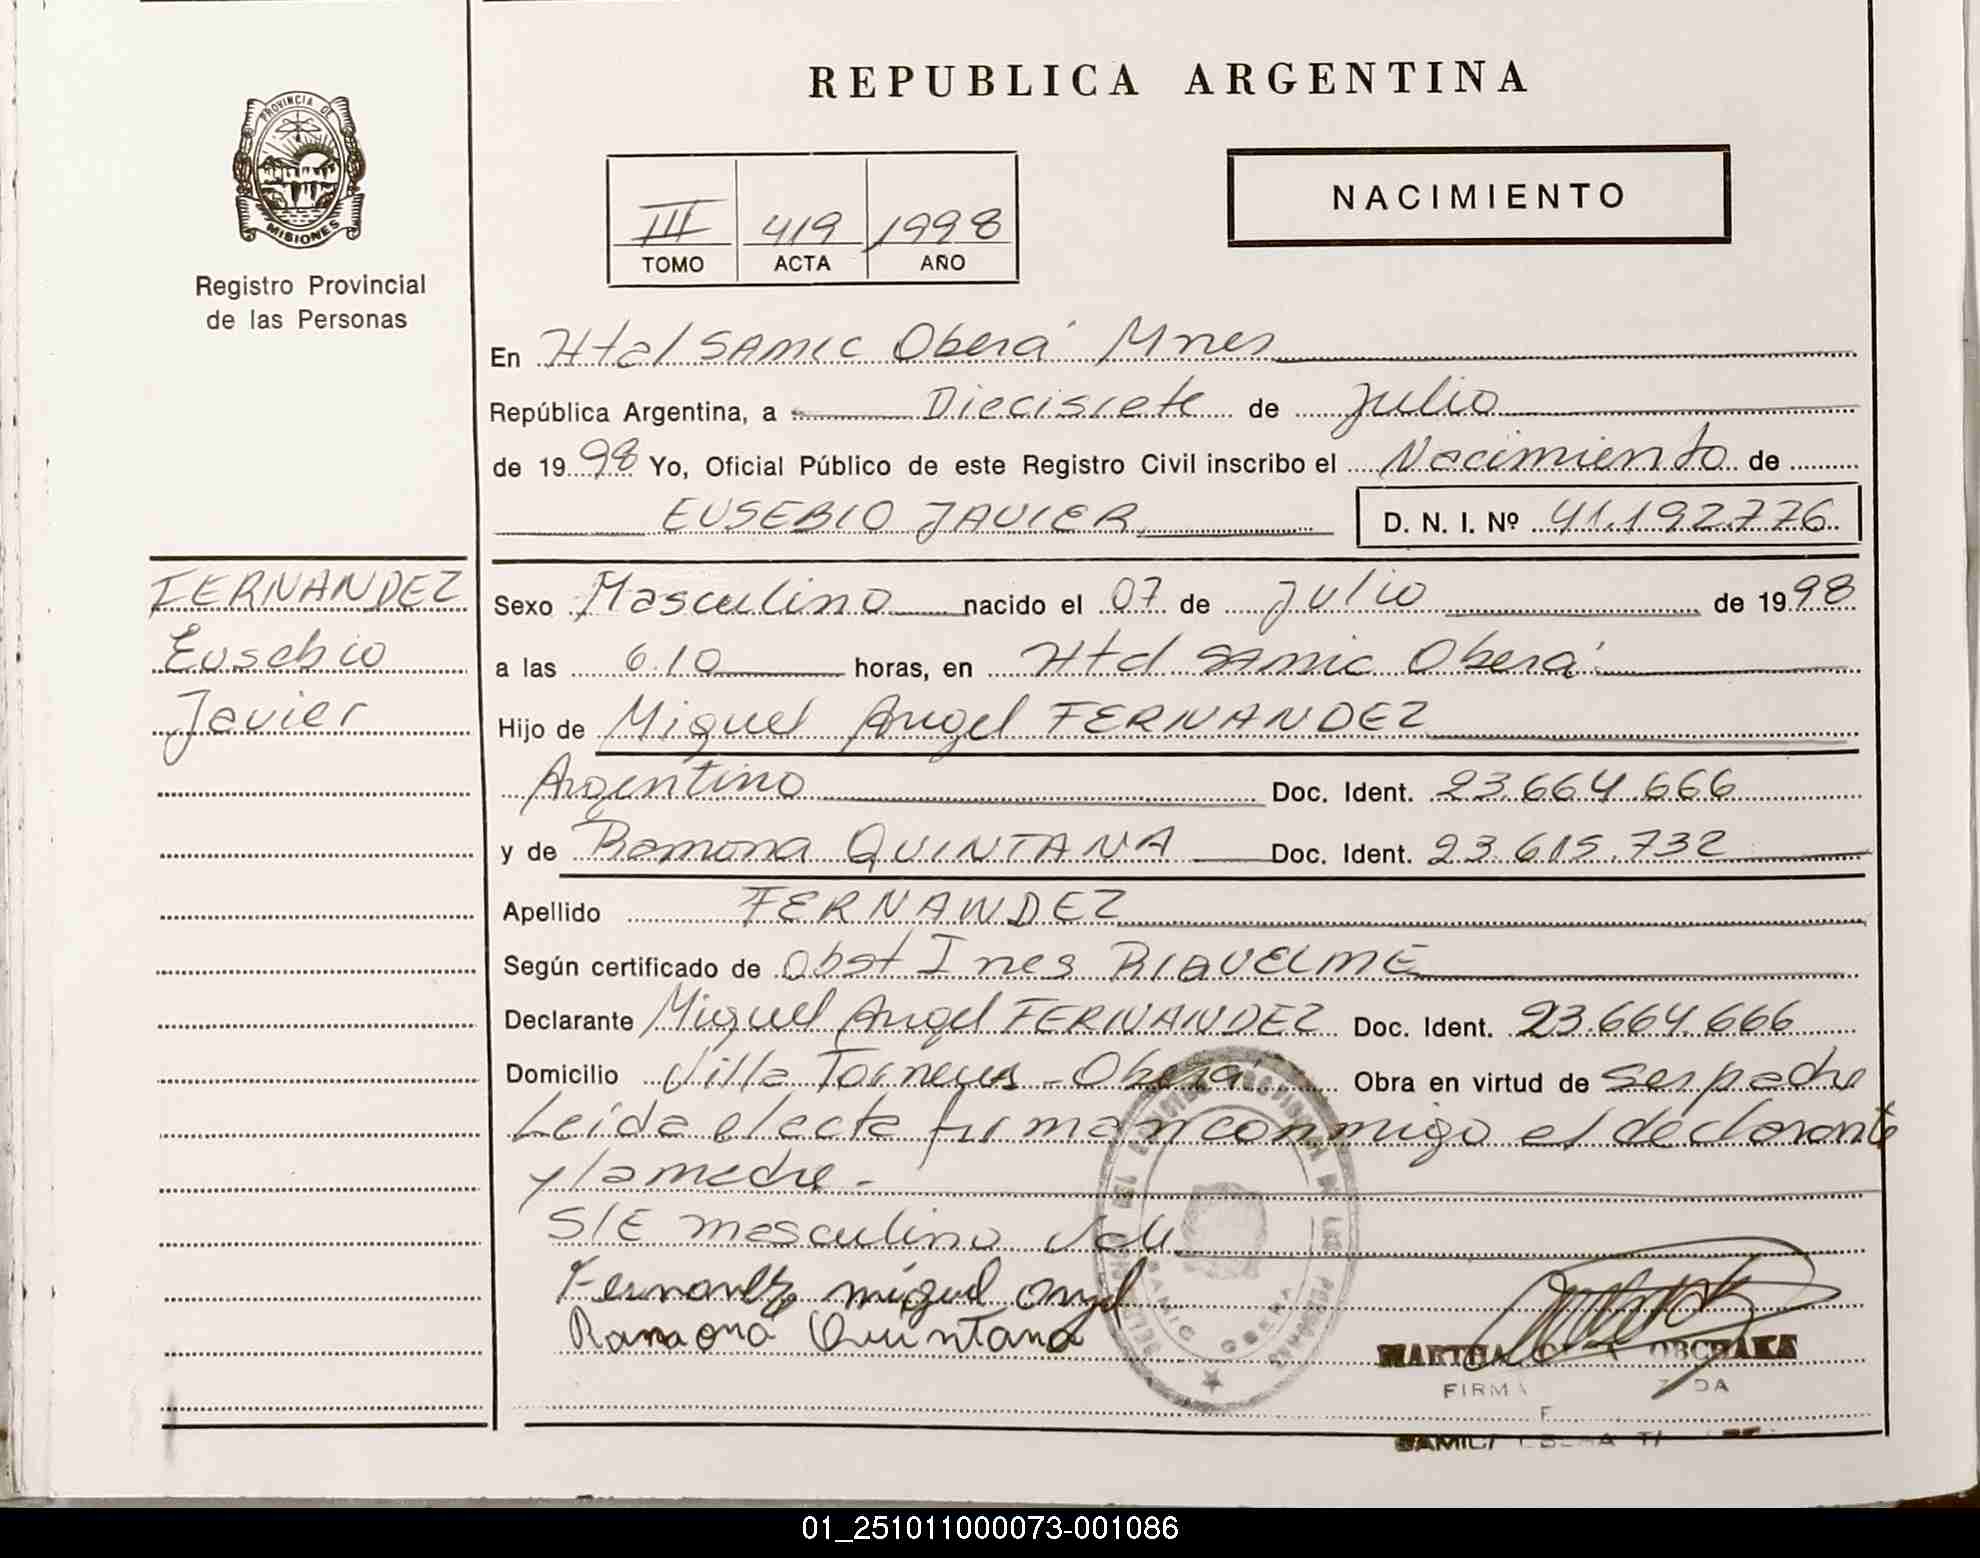 PROVINCIA DE
MISIONES
Registro Provincial
de las Personas
REPUBLICA ARGENTINA
III 419 1998
TOMO ACTA AÑO
NACIMIENTO
En Htal SAMIC Oberá Mnes
República Argentina, a Diecisiete de Julio
de 1998 Yo, Oficial Público de este Registro Civil inscribo el Nacimiento de
EUSEBIO JAVIER D. N. I. Nº 41.192.776
FERNANDEZ
Eusebio
Javier
Sexo Masculino nacido el 07 de Julio de 1998
a las 6.10 horas, en Htal SAmic Oberá
Hijo de Miguel Angel FERNANDEZ
Argentino Doc. Ident. 23.664.666
y de Ramona QUINTANA Doc. Ident. 23.615.732
Apellido FERNANDEZ
Según certificado de Obst Ines RIQUELME
Declarante Miguel Angel FERNANDEZ Doc. Ident. 23.664.666
Domicilio Villa Oberá Obra en virtud de ser padre
Leida el acta firman conmigo el declarante
y la madre.-
S/E masculino Vale
Fernandez miguel angel
Ramona Quintana
MARTHA
FIRMA
01_251011000073-001086